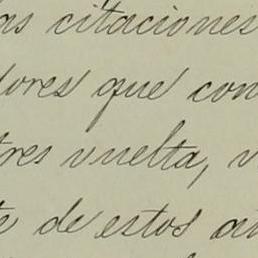 as citaciones
dores que con
tres vuelta, v
te de estos au